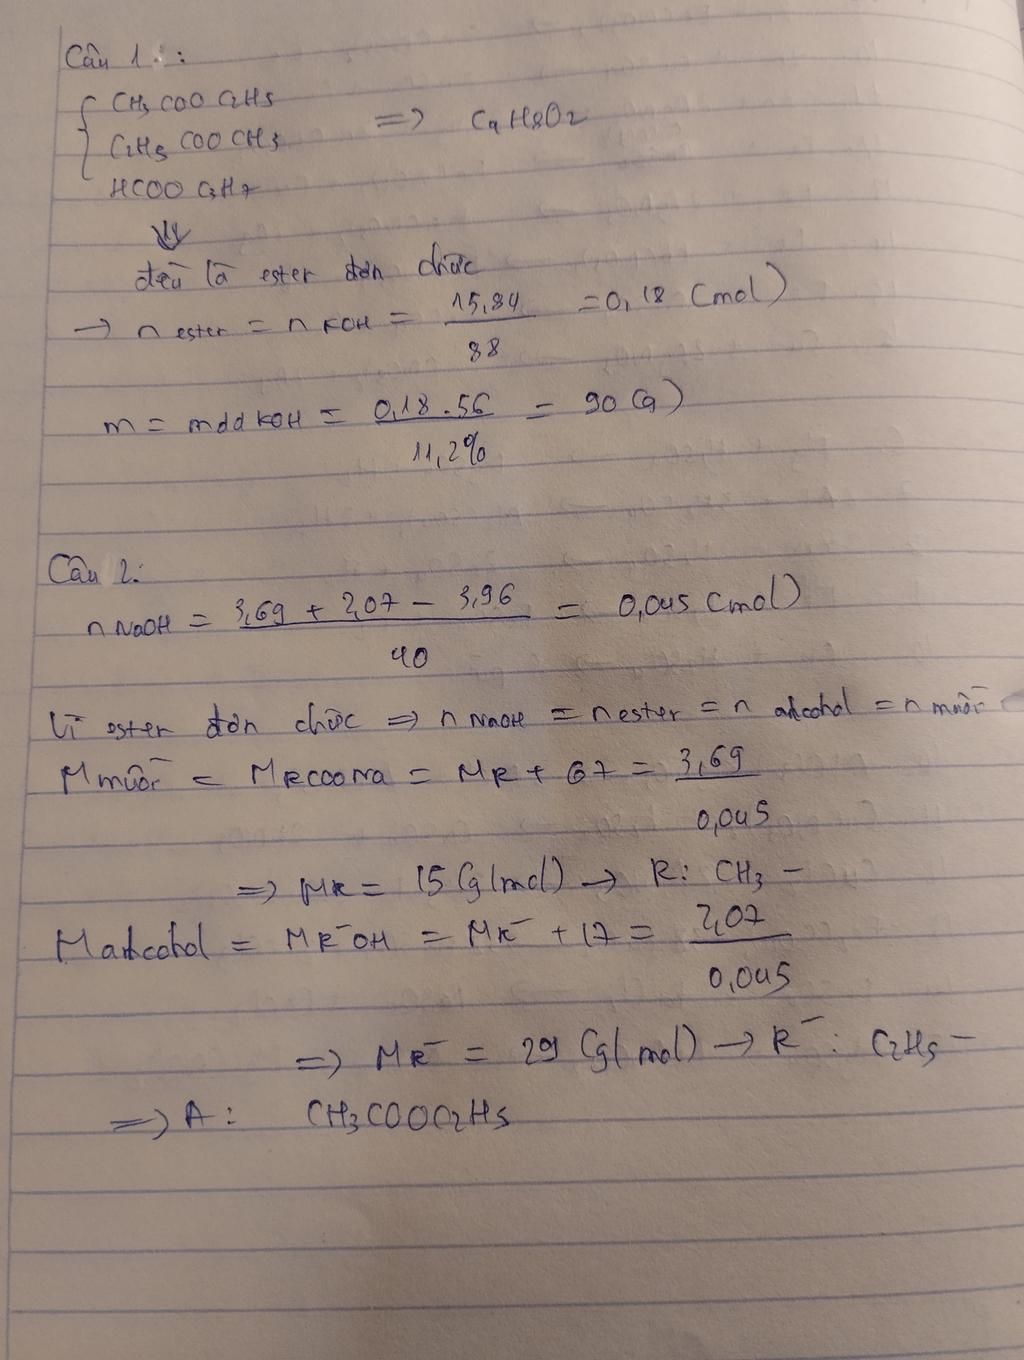 Câu 1 :
CH3COOC2H5
C2H5COOCH3 => C4H8O2
HCOOC3H7
đều là ester đơn chức
→ n ester = n KOH = 15,84 / 88 = 0,18 (mol)
m = mdd KOH = 0,18 . 56 / 11,2% = 90 (g)
Câu 2:
n NaOH = 3,69 + 2,07 - 3,96 / 40 = 0,045 (mol)
Vì ester đơn chức => n NaOH = n ester = n alcohol = n muối
M muối = MRCOONa = MR + 67 = 3,69 / 0,045
=> MR = 15 (g/mol) → R: CH3 -
M alcohol = MR'OH = MR' + 17 = 2,07 / 0,045
=> MR' = 29 (g/mol) → R' : C2H5 -
=> A : CH3COOC2H5